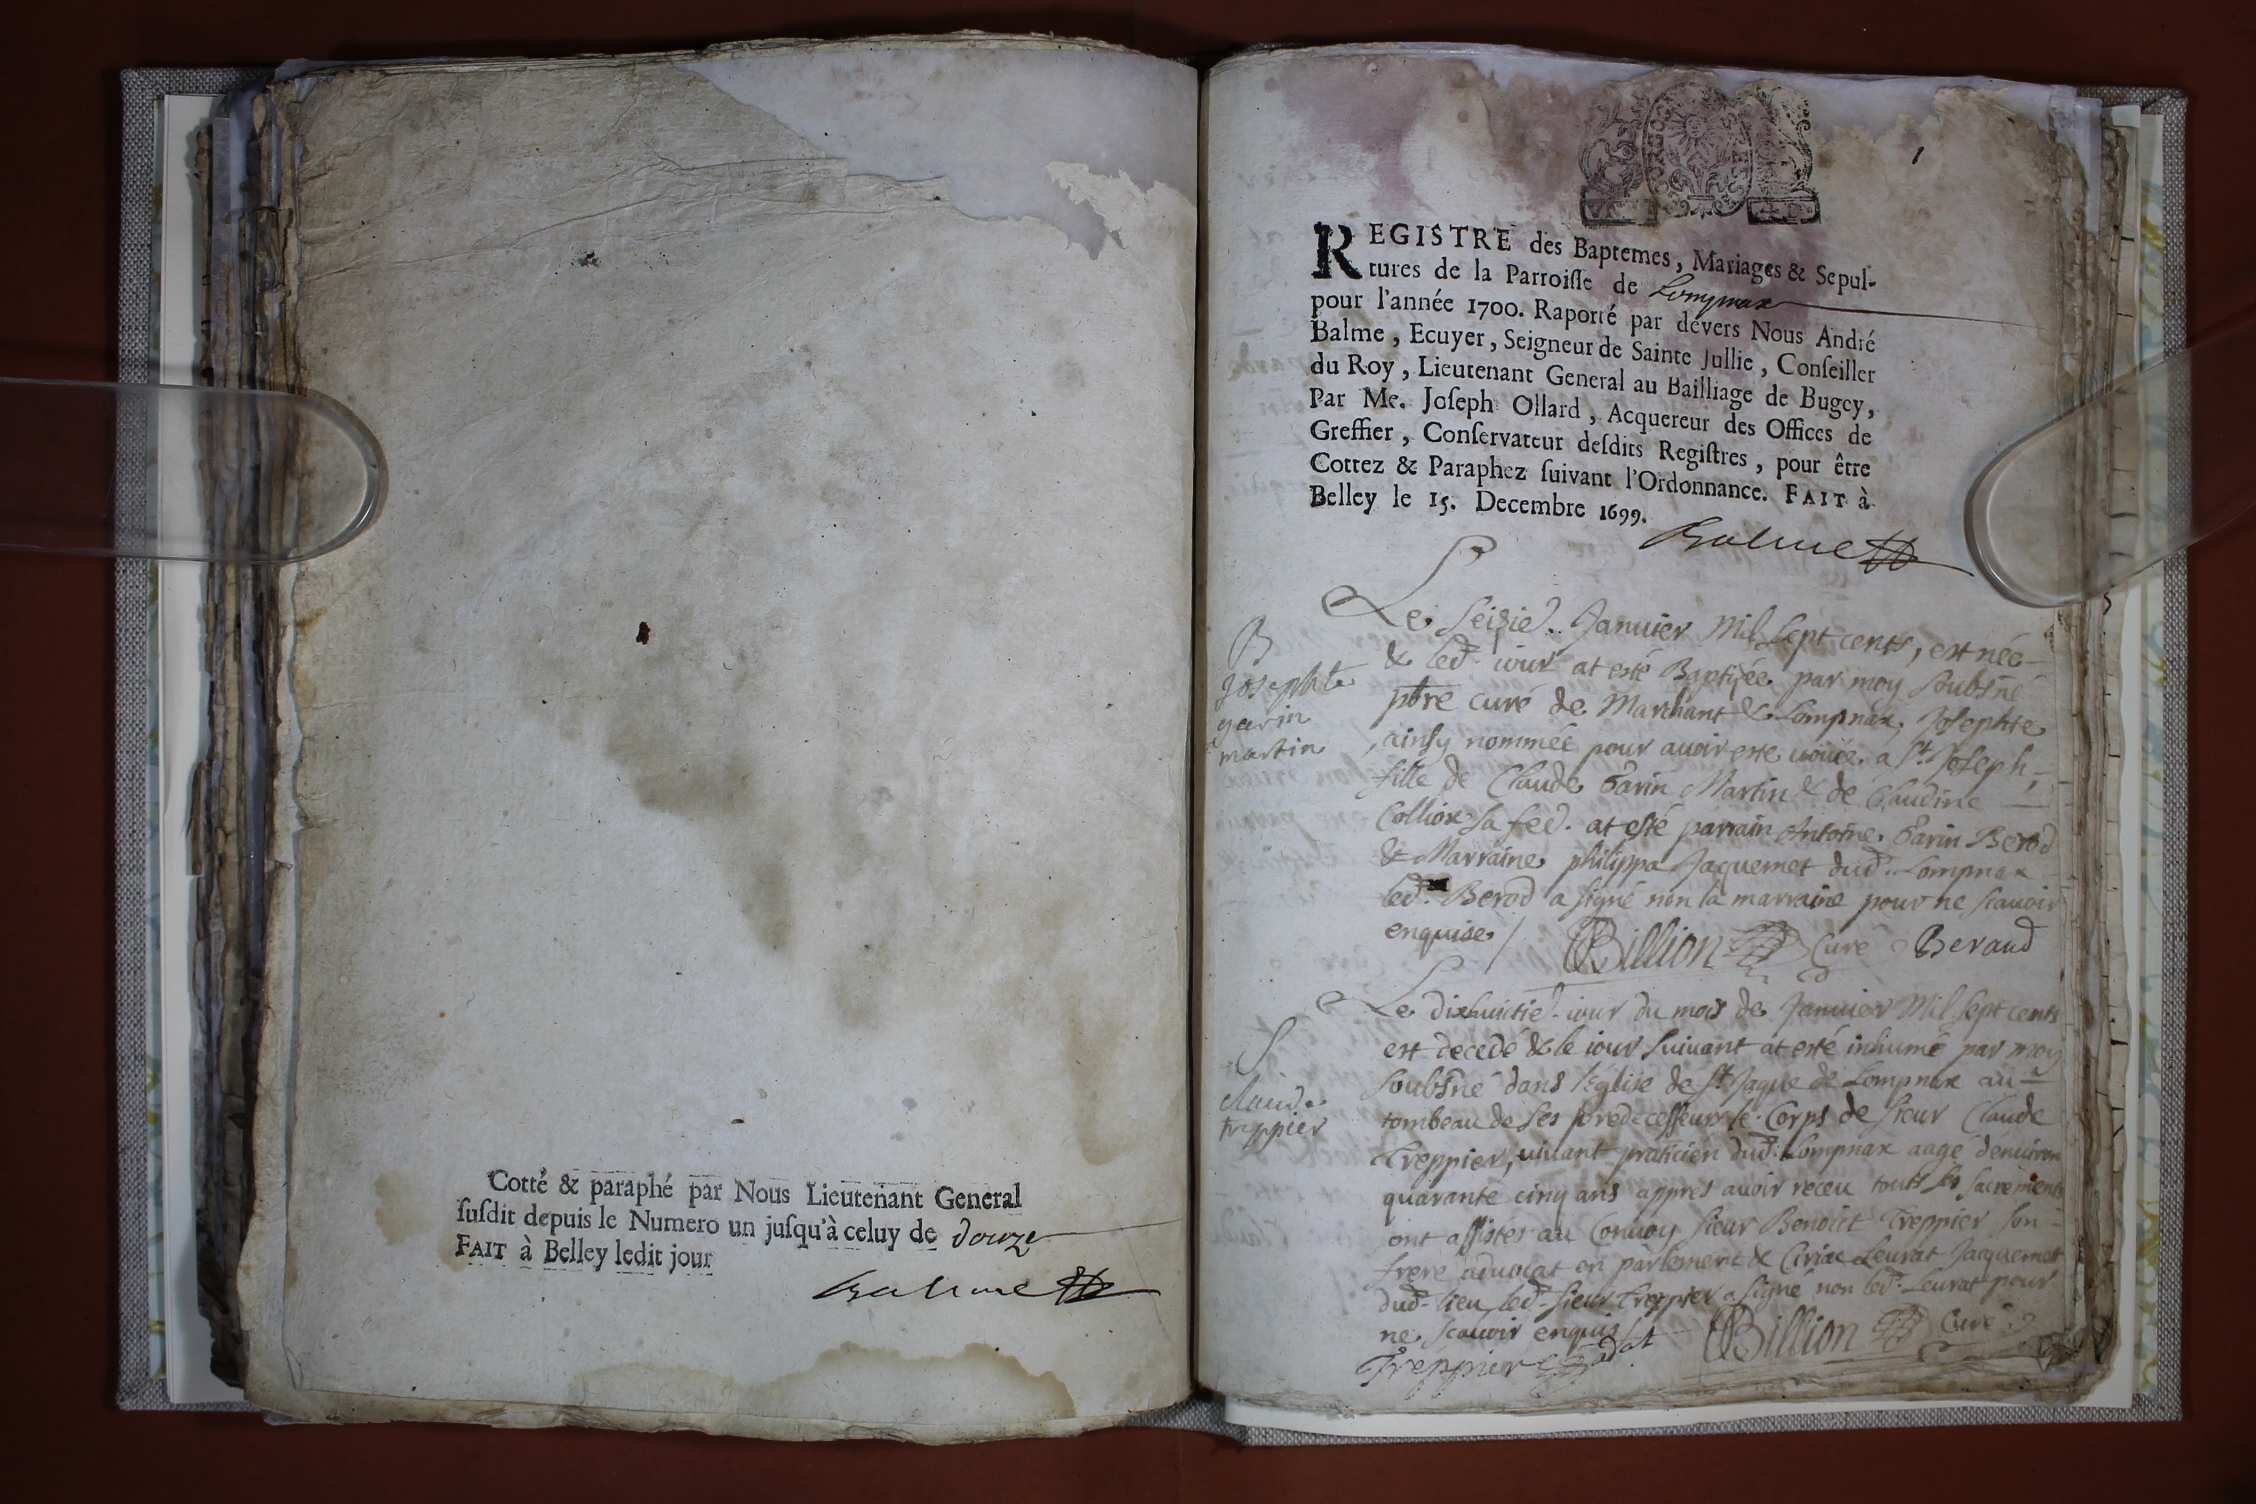 Cotté & paraphé par Nous Lieutenant General
susdit depuis le Numero un jusqu'à celuy de douze
FAIT à Belley ledit jour
Balme
1
REGISTRE des Baptemes, Mariages & Sepul-
tures de la Parroisse de Lompnax
pour l'année 1700. Raporté par devers Nous André
Balme, Ecuyer, Seigneur de Sainte Jullie, Conseiller
du Roy, Lieutenant General au Bailliage de Bugey,
Par Me. Joseph Ollard, Acquereur des Offices de
Greffier, Conservateur desdits Registres, pour être
Cottez & Paraphez suivant l'Ordonnance. FAIT à
Belley le 15. Decembre 1699.
Balme
B
Josephte
garin
martin
Le seizie. Janvier Mil sept cents, est née
& led. iour at esté Baptizée par moy soubsné
pbre curé de Marchant & Lompnax, Josephte
ainsy nommée pour avoir este vouée a St. Joseph,
fille de Claude Garin Martin & de Claudine
Colliox sa fed. at esté parrain Antoine Garin Berod
& Marraine philippa Jaquemet dud. Lompnax
led. Berod a signé non la marraine pour ne scavoir
enquise / Billion Curé Beraud
S
claude
treppier
Le dixhuictie. iour du mois de Janvier Mil sept cents
est decedé & le iour suivant at esté inhumé par moy
soubsné dans l'Eglise de St. Jaque de Lompnax au
tombeau de ses predecesseurs le Corps de sieur Claude
Treppier, vivant praticien dud. Lompnax aagé denviron
quarante cinq ans appres avoir receu touts les sacrements
ont assistés au Convoy sieur Benoict Treppier son
frere advocat en parlement & Ciriac Leurat Jacquemet
dud. lieu, led. sieur Treppier a signé non led. Leurat pour
ne scavoir enquis
Treppier Billion Curé